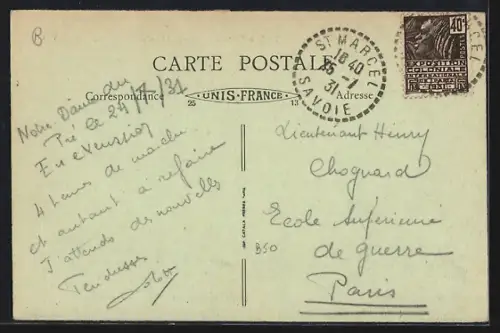 B
CARTE POSTALE
Correspondance
UNIS-FRANCE
25
13
Adresse
ST MARCEL
18 40
25 -7
31
SAVOIE
40c
EXPOSITION
COLONIALE
INTERNATIONALE
Notre Dame du
Pré le 24/7/31
En excursion
4 heures de marche
et autant à refaire
J'attends des nouvelles
Tendresses
Lieutenant Henry
Chognard
Ecole Supérieure
de guerre
Paris
B50
IMP. CATALA FRÈRES